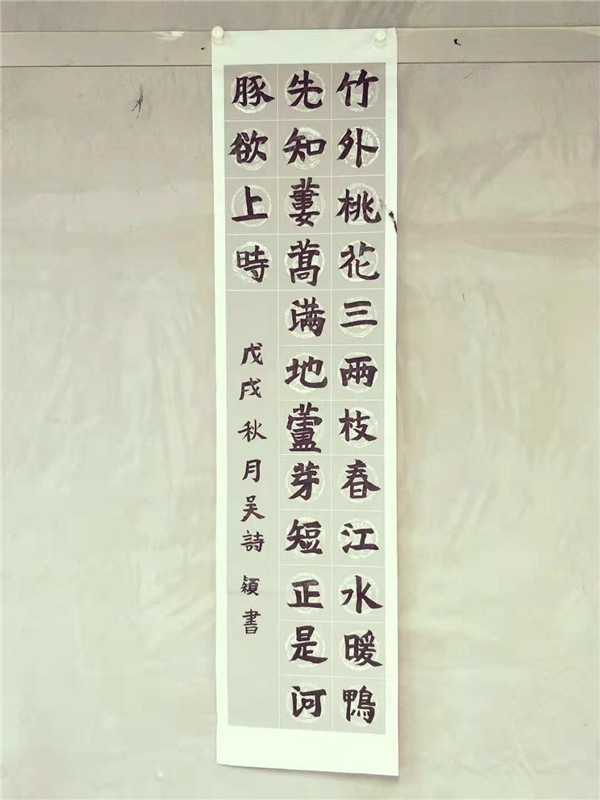 竹外桃花三兩枝春江水暖鴨
先知蔞蒿满地蘆芽短正是河
豚欲上時
戊戌秋月吴詩穎書